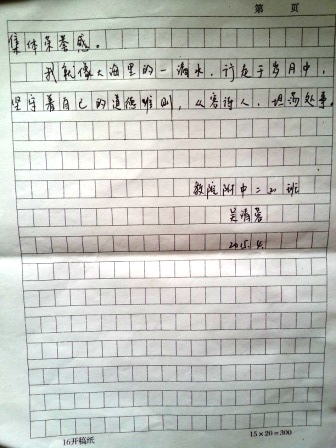 第 页
集体荣誉感。
我就像大海里的一滴水，行走于岁月中，
坚守着自己的道德准则，从容待人，坦荡处事。
教院附中二20班
吴倩蓉
2015.4.
16开稿纸
15×20=300